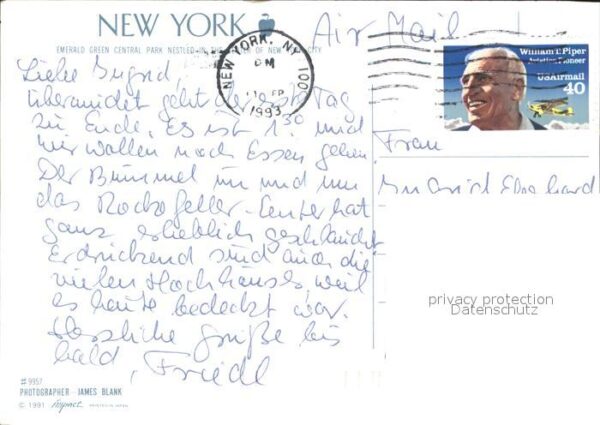 NEW YORK
Air Mail
EMERALD GREEN CENTRAL PARK NESTLED IN THE CENTER OF NEW YORK CITY
NEW YORK, NY 100
PM
1993
William T. Piper
Aviation Pioneer
USAirmail
40
Liebe Sigrid,
übermüdet geht der erste Tag
zu Ende. Es ist 1³⁰ und
wir wollen noch Essen gehen.
Der Bummel im und um
das Rockefeller-Center hat
ganz erheblich geschlaucht.
Erdrückend sind auch die
vielen Hochhäuser, weil
es heute bedeckt war.
Herzliche Grüße bis
bald, Friedl
Frau
Eberhard
privacy protection
Datenschutz
#9957
PHOTOGRAPHER - JAMES BLANK
© 1991 Impact PRINTED IN JAPAN